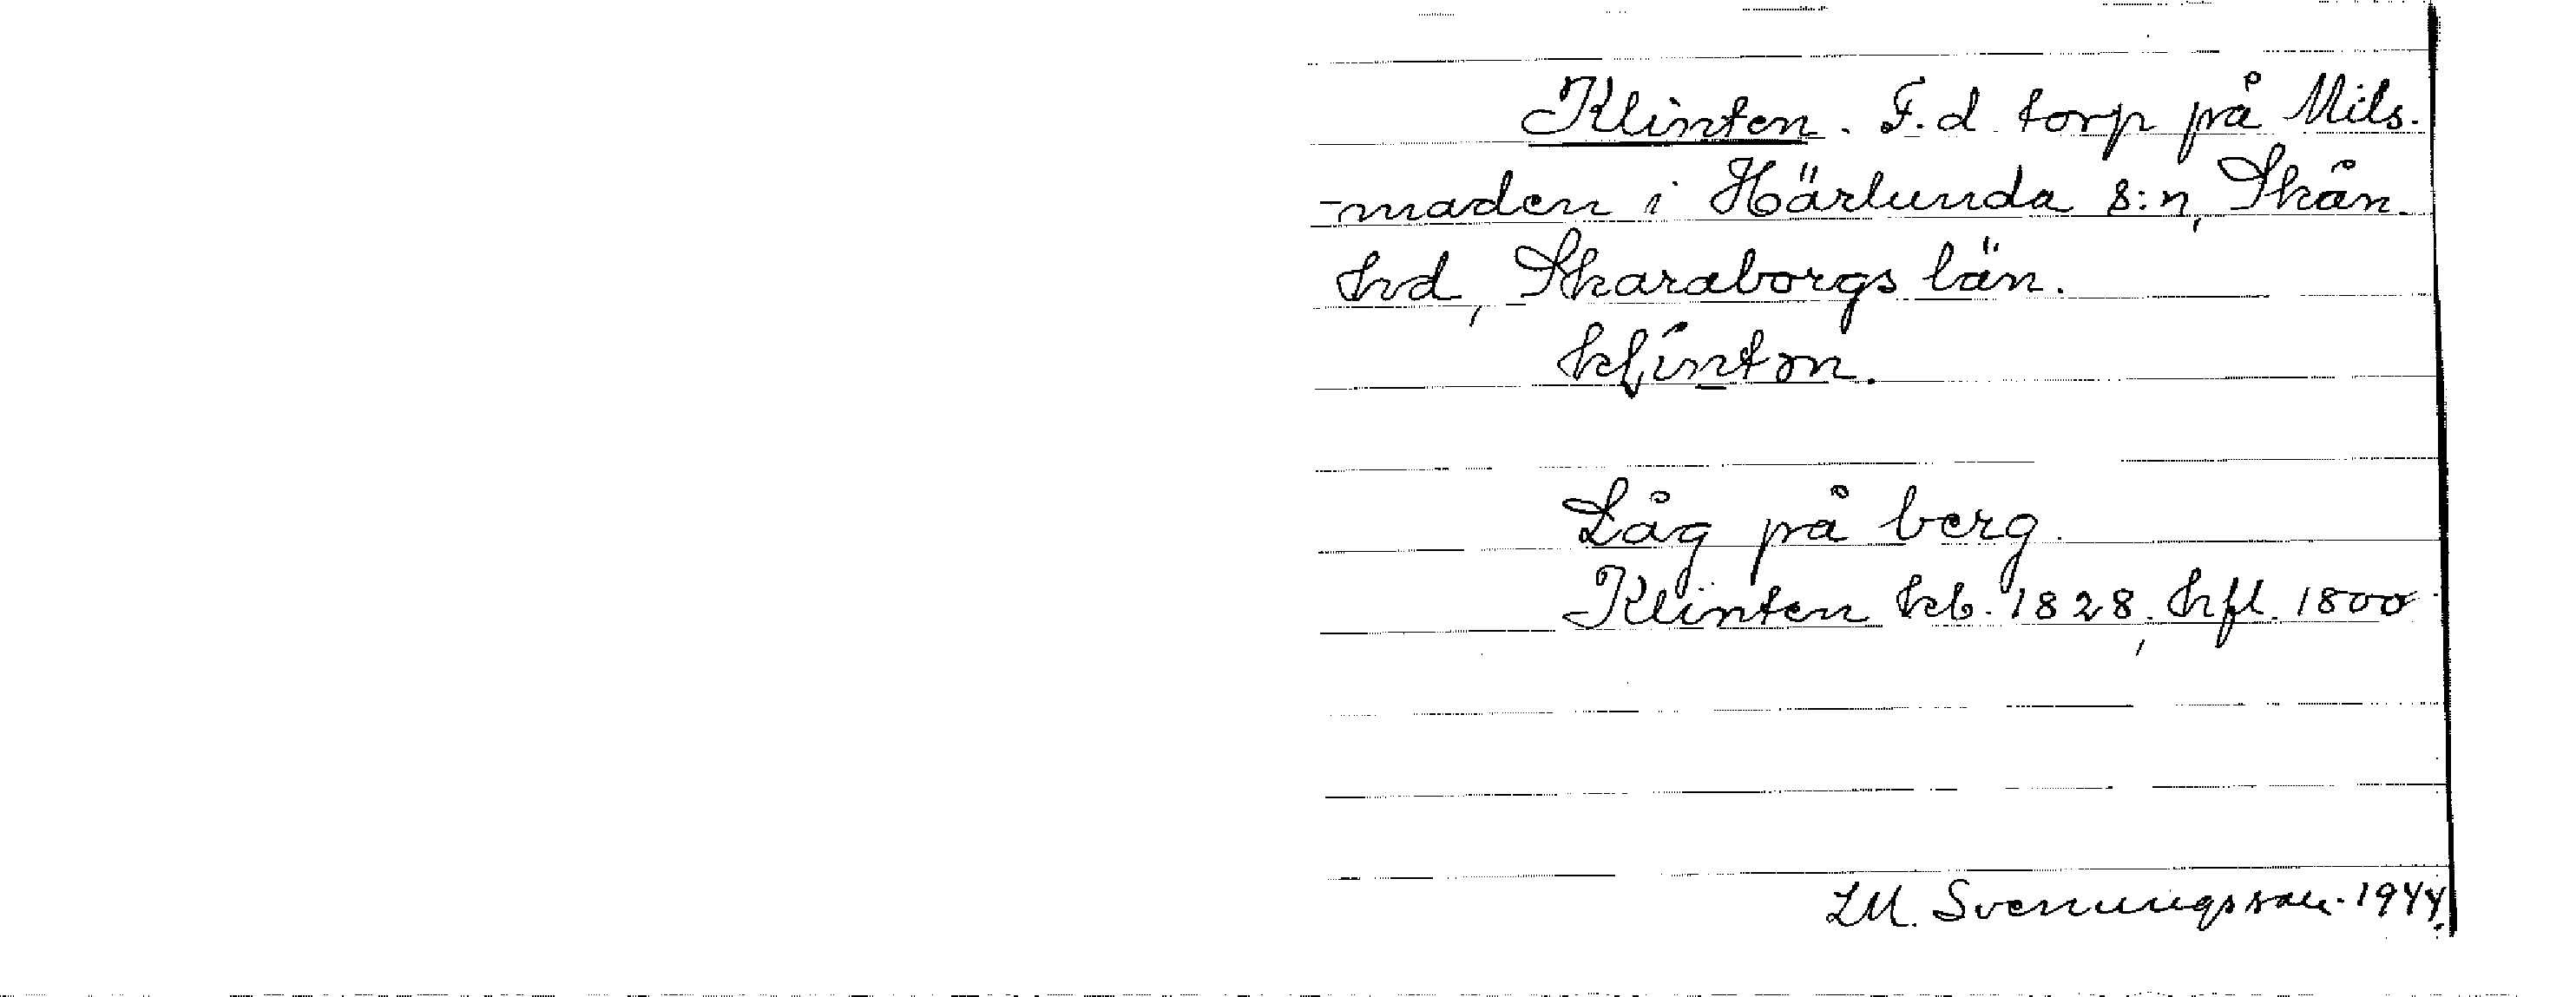 Klinten. F.d. torp på Mils-
-maden i Härlunda s:n, Skån.
hd, Skaraborgs län.
Låg på berg.
Klinten kb. 1828, hfl. 1800
LM. Svenungsson. 1944.